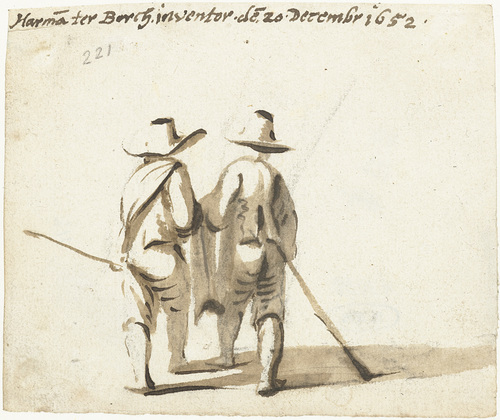 Harmā ter Borch. inventor. dē. 20 Decembr 1652.
221